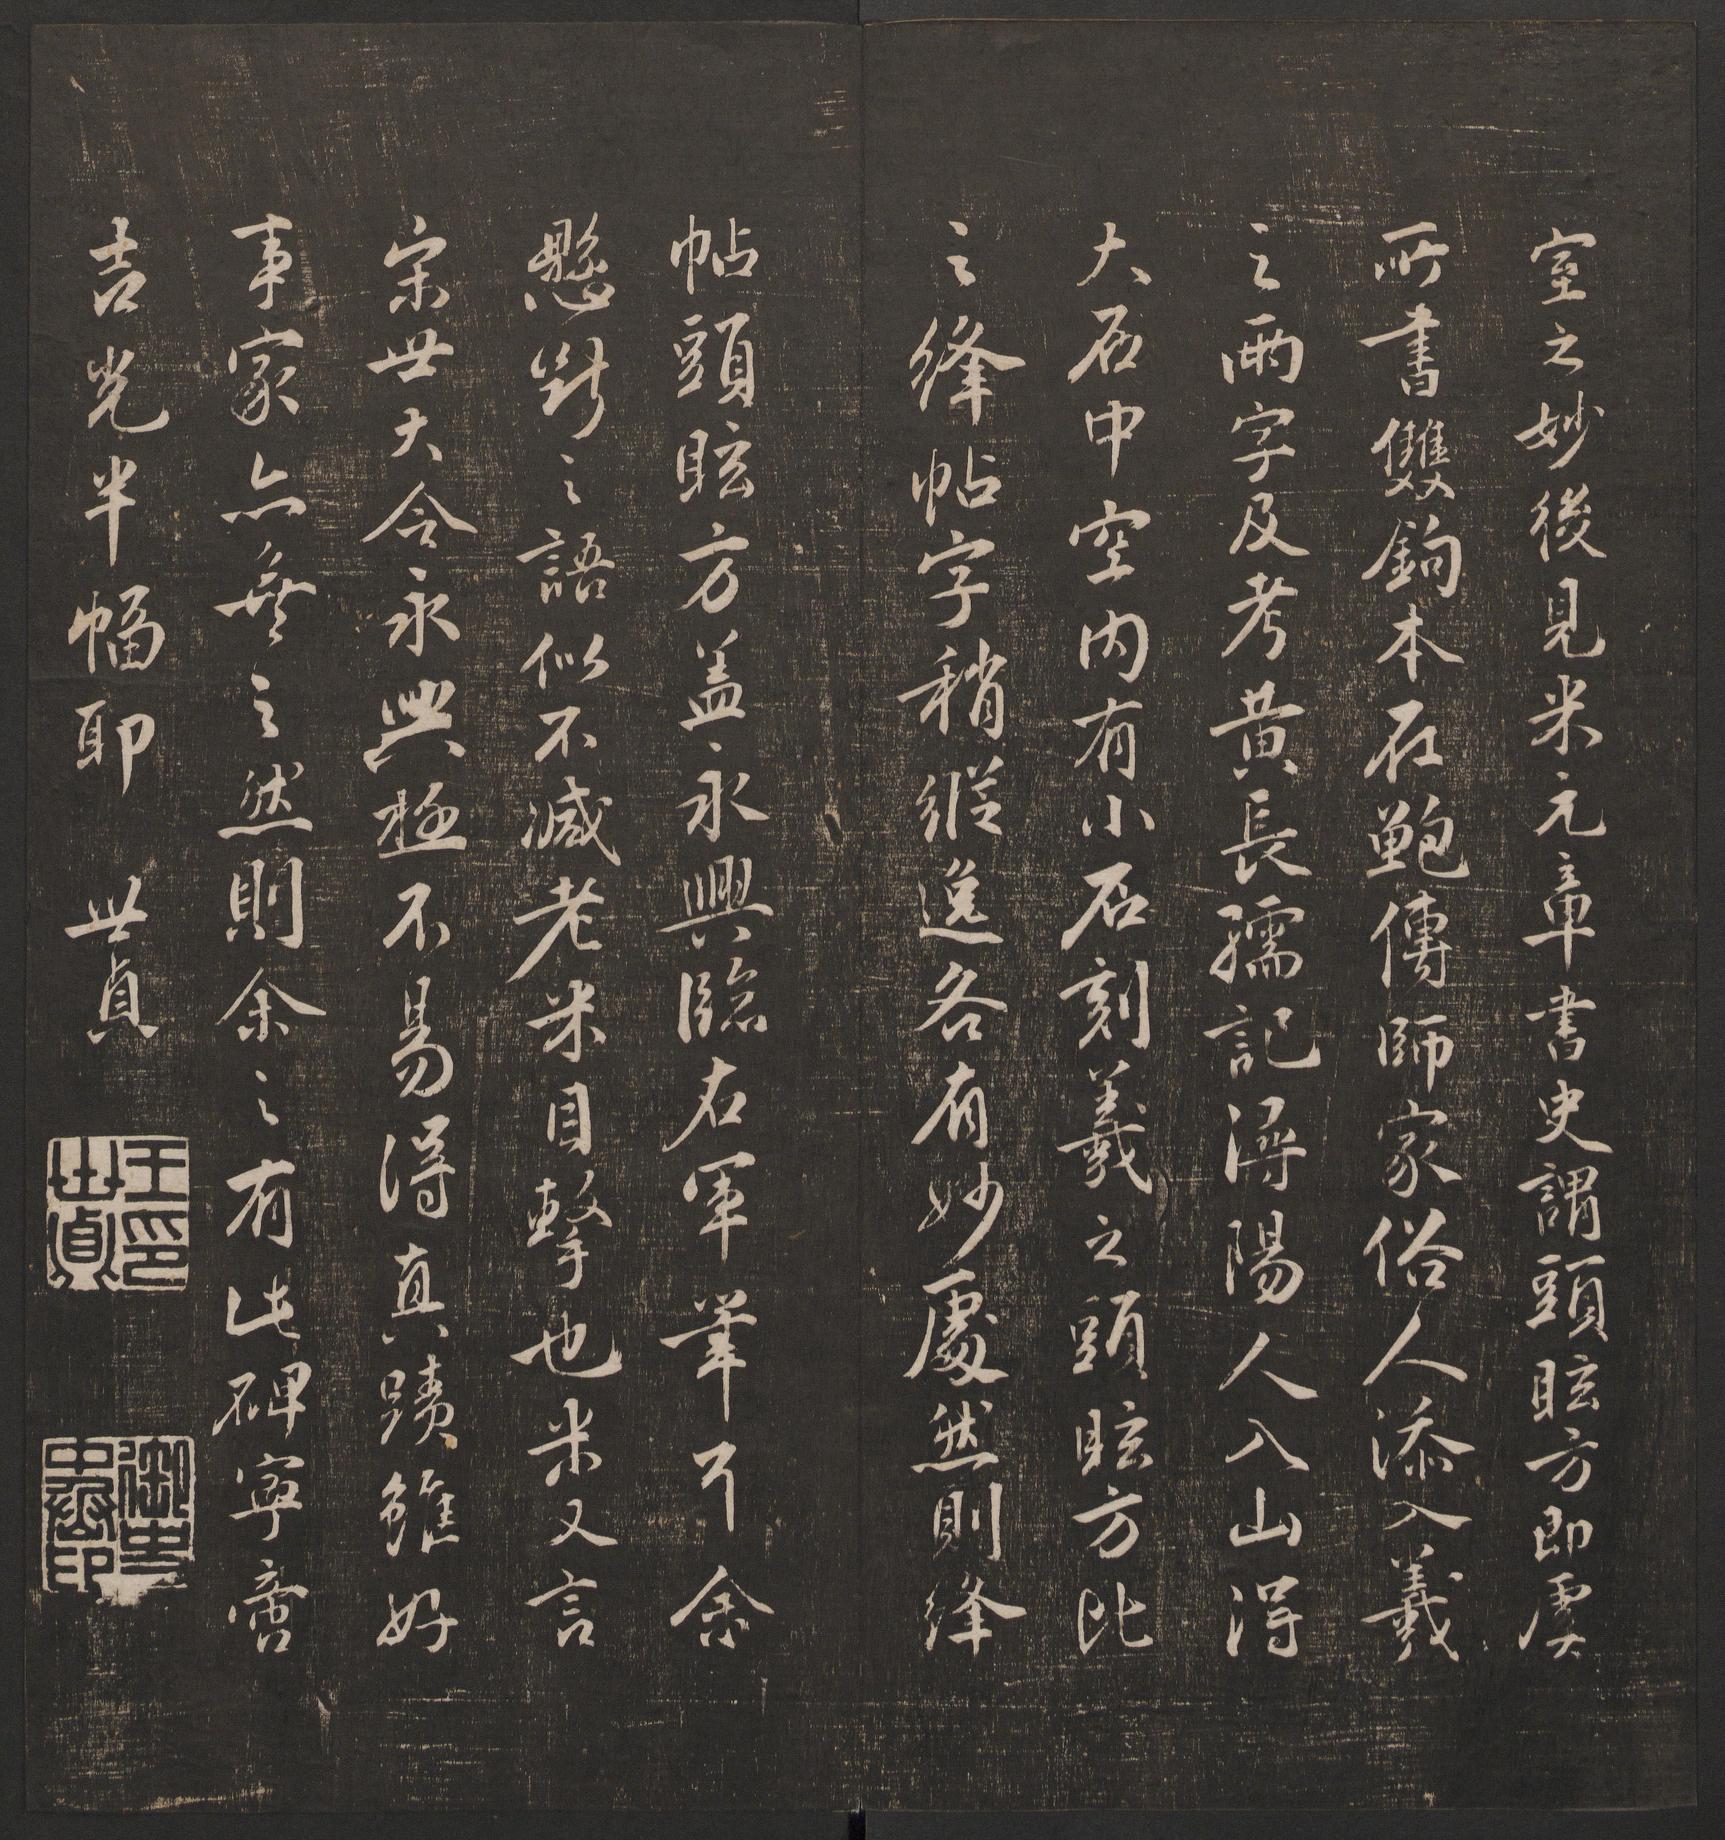 室之妙後見米元章書史謂頭眩方即虞
所書雙鉤本在鮑傳師家俗人添入羲
之兩字及考黃長孺記潯陽人入山得
大石中空内有小石刻羲之頭眩方比
之絳帖字稍縱逸各有妙處然則絳
帖頭眩方蓋永興臨右軍筆耳余
懸斷之語似不減老米目擊也米又言
宋世大令永興極不易得真蹟雖好
事家亦無之然則余之有此碑寧啻
吉光半幅耶 世貞
王世貞印
御史中丞印